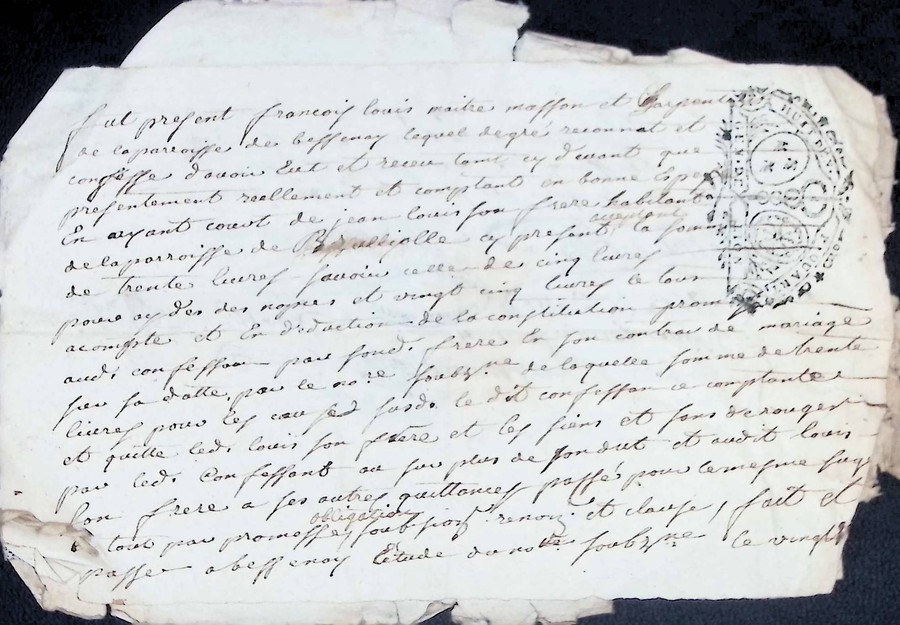 fut present francois louis maitre masson et Charpent
de laparroisse de bessenay lequel de gré reconnat et
confesse d'avoir Eut et receu tant cy devant que
presentement reellement et comptant en bonne Espe
En ayant court de jean louis son frere habitant
de la parroisse de cy present acceptant la som
de trente livres savoir celle de cinq livres
pour aydes des nopces et vingt cinq livres le tous
acompte et En deduction de la constitution prom
audt confessant par sond. frere En son contrac de mariage
sur sa datte par le no.re soubzne de laquelle somme de trente
livres pour les causes susd. le dit confessan ce comptante
et quitte led. louis son frère et les siens et sans derouger
par led. Confessant au sur plus de son dut et audit louis
son frere a ses autres quittances passés pour le mesme suj
tout par promesse obligation soubsion renon. et clause, fait et
passé a bessenay Etude du notre soubzne le vingt
HUIT DEN